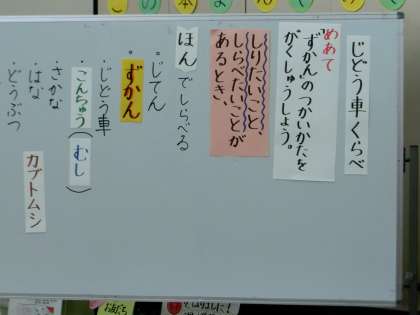 この本よんで
じどう車くらべ
めあて
「ずかん」のつかいかたを
がくしゅうしよう。
しりたいこと、
しらべたいことが
あるとき、
ほんでしらべる
・じてん
・ずかん
・じどう車
・こんちゅう(むし)
カブトムシ
・さかな
・はな
・どうぶつ